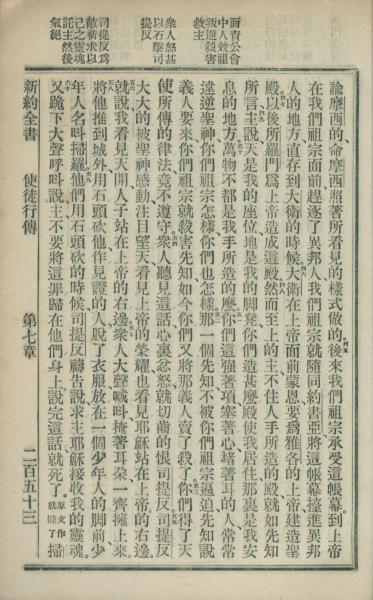 面責公會
中人效祖
叛道殺害
救主
衆人怒甚
以石擊司
提反
司提反爲
敵祈求以
己之靈魂
託主然後
氣絕
諭摩西的命摩西照著所看見的樣式做的後來我們祖宗承受這帳幕到上帝
在我們祖宗面前趕逐了異邦人我們祖宗就隨同約書亞將這帳幕擡進異邦
人的地方直存到大衛的時候大衛在上帝面前蒙恩要爲雅各的上帝建造聖
殿以後所羅門爲上帝造成這殿然而至上的主不住人手所造的殿就如先知
所言主說天是我的座位地是我的脚凳你們造甚麼殿使我居住那裏是我安
息的地方萬物不都是我手所造的麼你們這強著項塞著心堵著耳的人常常
違逆聖神你們祖宗怎樣你們也怎樣那一個先知不被你們祖宗逼迫先知說
義人要來你們祖宗就殺害先知如今你們又將那義人賣了殺了你們得了天
使所傳的律法竟不遵守衆人聽見這話心裏忿怒就切齒的恨司提反司提反
大大的被聖神感動注目望天看見上帝的榮耀也看見耶穌站在上帝的右邊
就說我看見天開人子站在上帝的右邊衆人大聲喊呌掩著耳朶一齊擁上來
將他推到城外用石頭砍他作見證的人脫了衣服放在一個少年人的脚前少
年人名呌掃羅他們用石頭砍的時候司提反禱吿說求主耶穌接收我的靈魂
又跪下大聲呼呌說主不要將這罪歸在他們身上說完這話就死了原文作就睡了掃
新約全書 使徒行傳 第七章 二百五十三